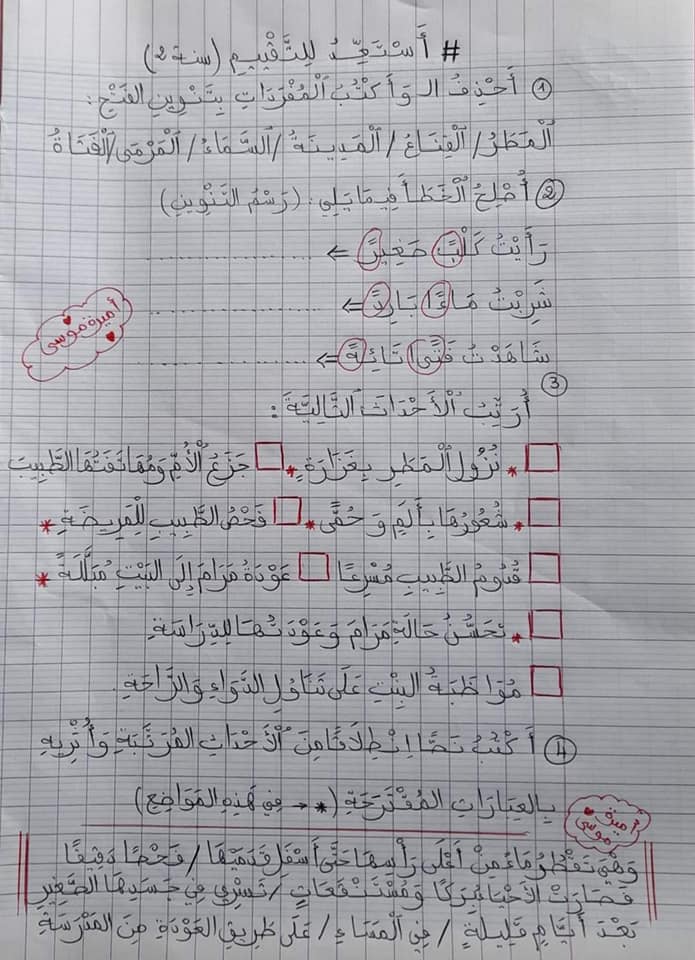 # أَسْتَعِدُّ لِلتَّقْيِيمِ (سنة 2)
① أَحْذِفُ الـ وَأَكْتُبُ الْمُفْرَدَاتِ بِتَنْوِينِ الفَتْحِ:
الْمَطَرُ / الْقِنَاعُ / الْمَدِينَةُ / السَّمَاءُ / الْمَرْمَى / الْفَتَاةُ
② أُصْلِحُ الْخَطَأَ فِيمَا يَلِي: (رَسْمُ التَّنْوِينِ)
رَأَيْتُ كَلْبً صَغِيرً ⇐ ....................
شَرِبْتُ مَاءًا بَارِدً ⇐ ....................
شَاهَدْتُ فَتًىا تَائِةً ⇐ ....................
أميرة موسى
③
أُرَتِّبُ الْأَحْدَاثَ التَّالِيَّةَ:
* نُزُولُ الْمَطَرِ بِغَزَارَةٍ * جَزَعُ الْأُمِّ وَمُهَاتَفَتُهَا الطَّبِيبَ
* شُعُورُهَا بِأَلَمٍ وَحُمَّى * فَحْصُ الطَّبِيبِ لِلْمَرِيضَةِ *
قُدُومُ الطَّبِيبِ مُسْرِعًا عَوْدَةُ مَرَامَ إِلَى البَيْتِ مُبَلَّلَةً *
* تَحَسُّنُ حَالَةِ مَرَامَ وَعَوْدَتُهَا لِلدِّرَاسَةِ
مُوَاظَبَةُ البِنْتِ عَلَى تَنَاوُلِ الدَّوَاءِ وَالرَّاحَةِ.
④ أَكْتُبُ نَصًّا اِنْطِلَاقًا مِنَ الْأَحْدَاثِ المُرَتَّبَةِ وَأُثْرِيهِ
بِالعِبَارَاتِ المُقْتَرَحَةِ (* → فِي هَذِهِ المَوَاضِعِ)
أميرة موسى
وَهْيَ تَقْطُرُ مَاءً مِنْ أَعْلَى رَأْسِهَا حَتَّى أَسْفَلِ قَدَمَيْهَا / فَحْصًا دَقِيقًا
فَصَارَتْ الأَحْيَاءُ بِرَكًا وَمُسْتَنْقَعَاتٍ / تَسْرِي فِي جَسَدِهَا الصَّغِيرِ
بَعْدَ أَيَّامٍ قَلِيلَةٍ / فِي الْمَسَاءِ / عَلَى طَرِيقِ العَوْدَةِ مِنَ المَدْرَسَةِ